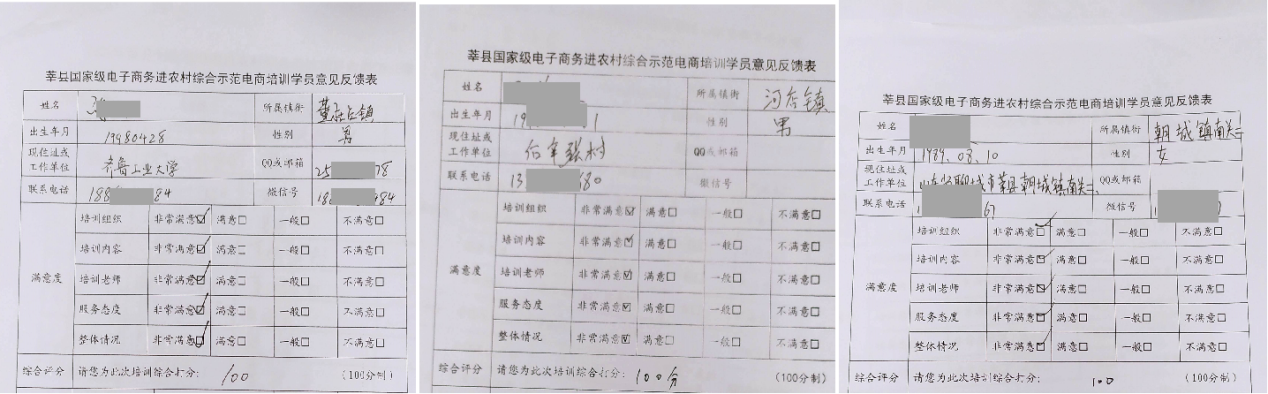 莘县国家级电子商务进农村综合示范电商培训学员意见反馈表
姓名 所属镇街
出生年月 19980428 性别 男
现住址或工作单位 齐鲁工业大学 QQ或邮箱 25 78
联系电话 188 84 微信号 18 484
满意度
培训组织 非常满意☑ 满意□ 一般□ 不满意□
培训内容 非常满意☑ 满意□ 一般□ 不满意□
培训老师 非常满意☑ 满意□ 一般□ 不满意□
服务态度 非常满意☑ 满意□ 一般□ 不满意□
整体情况 非常满意☑ 满意□ 一般□ 不满意□
综合评分 请您为此次培训综合打分: 100 (100分制)
莘县国家级电子商务进农村综合示范电商培训学员意见反馈表
姓名 所属镇街 河店镇
出生年月 19 1 性别 男
现住址或工作单位 QQ或邮箱
联系电话 13 680 微信号
满意度
培训组织 非常满意☑ 满意□ 一般□ 不满意□
培训内容 非常满意☑ 满意□ 一般□ 不满意□
培训老师 非常满意☑ 满意□ 一般□ 不满意□
服务态度 非常满意☑ 满意□ 一般□ 不满意□
整体情况 非常满意☑ 满意□ 一般□ 不满意□
综合评分 请您为此次培训综合打分: 100分 (100分制)
莘县国家级电子商务进农村综合示范电商培训学员意见反馈表
姓名 所属镇街 朝城镇南关
出生年月 1989.08.10 性别 女
现住址或工作单位 山东省聊城市莘县朝城镇南关 QQ或邮箱
联系电话 微信号
满意度
培训组织 非常满意☑ 满意□ 一般□ 不满意□
培训内容 非常满意☑ 满意□ 一般□ 不满意□
培训老师 非常满意☑ 满意□ 一般□ 不满意□
服务态度 非常满意☑ 满意□ 一般□ 不满意□
整体情况 非常满意☑ 满意□ 一般□ 不满意□
综合评分 请您为此次培训综合打分: 100 (100分制)